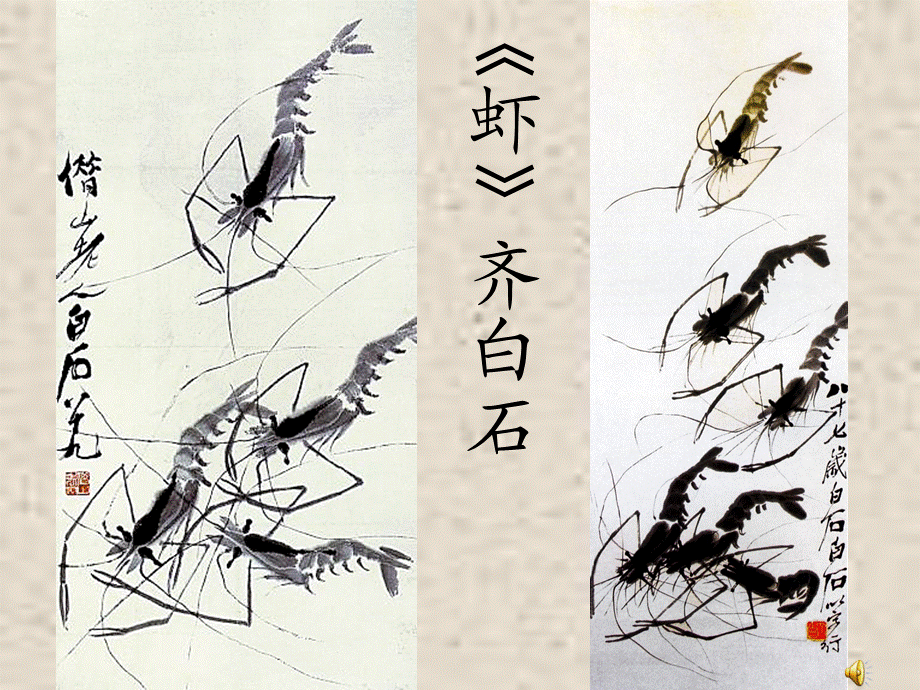 《虾》齐白石
借山老人白石
八十七岁白石白石